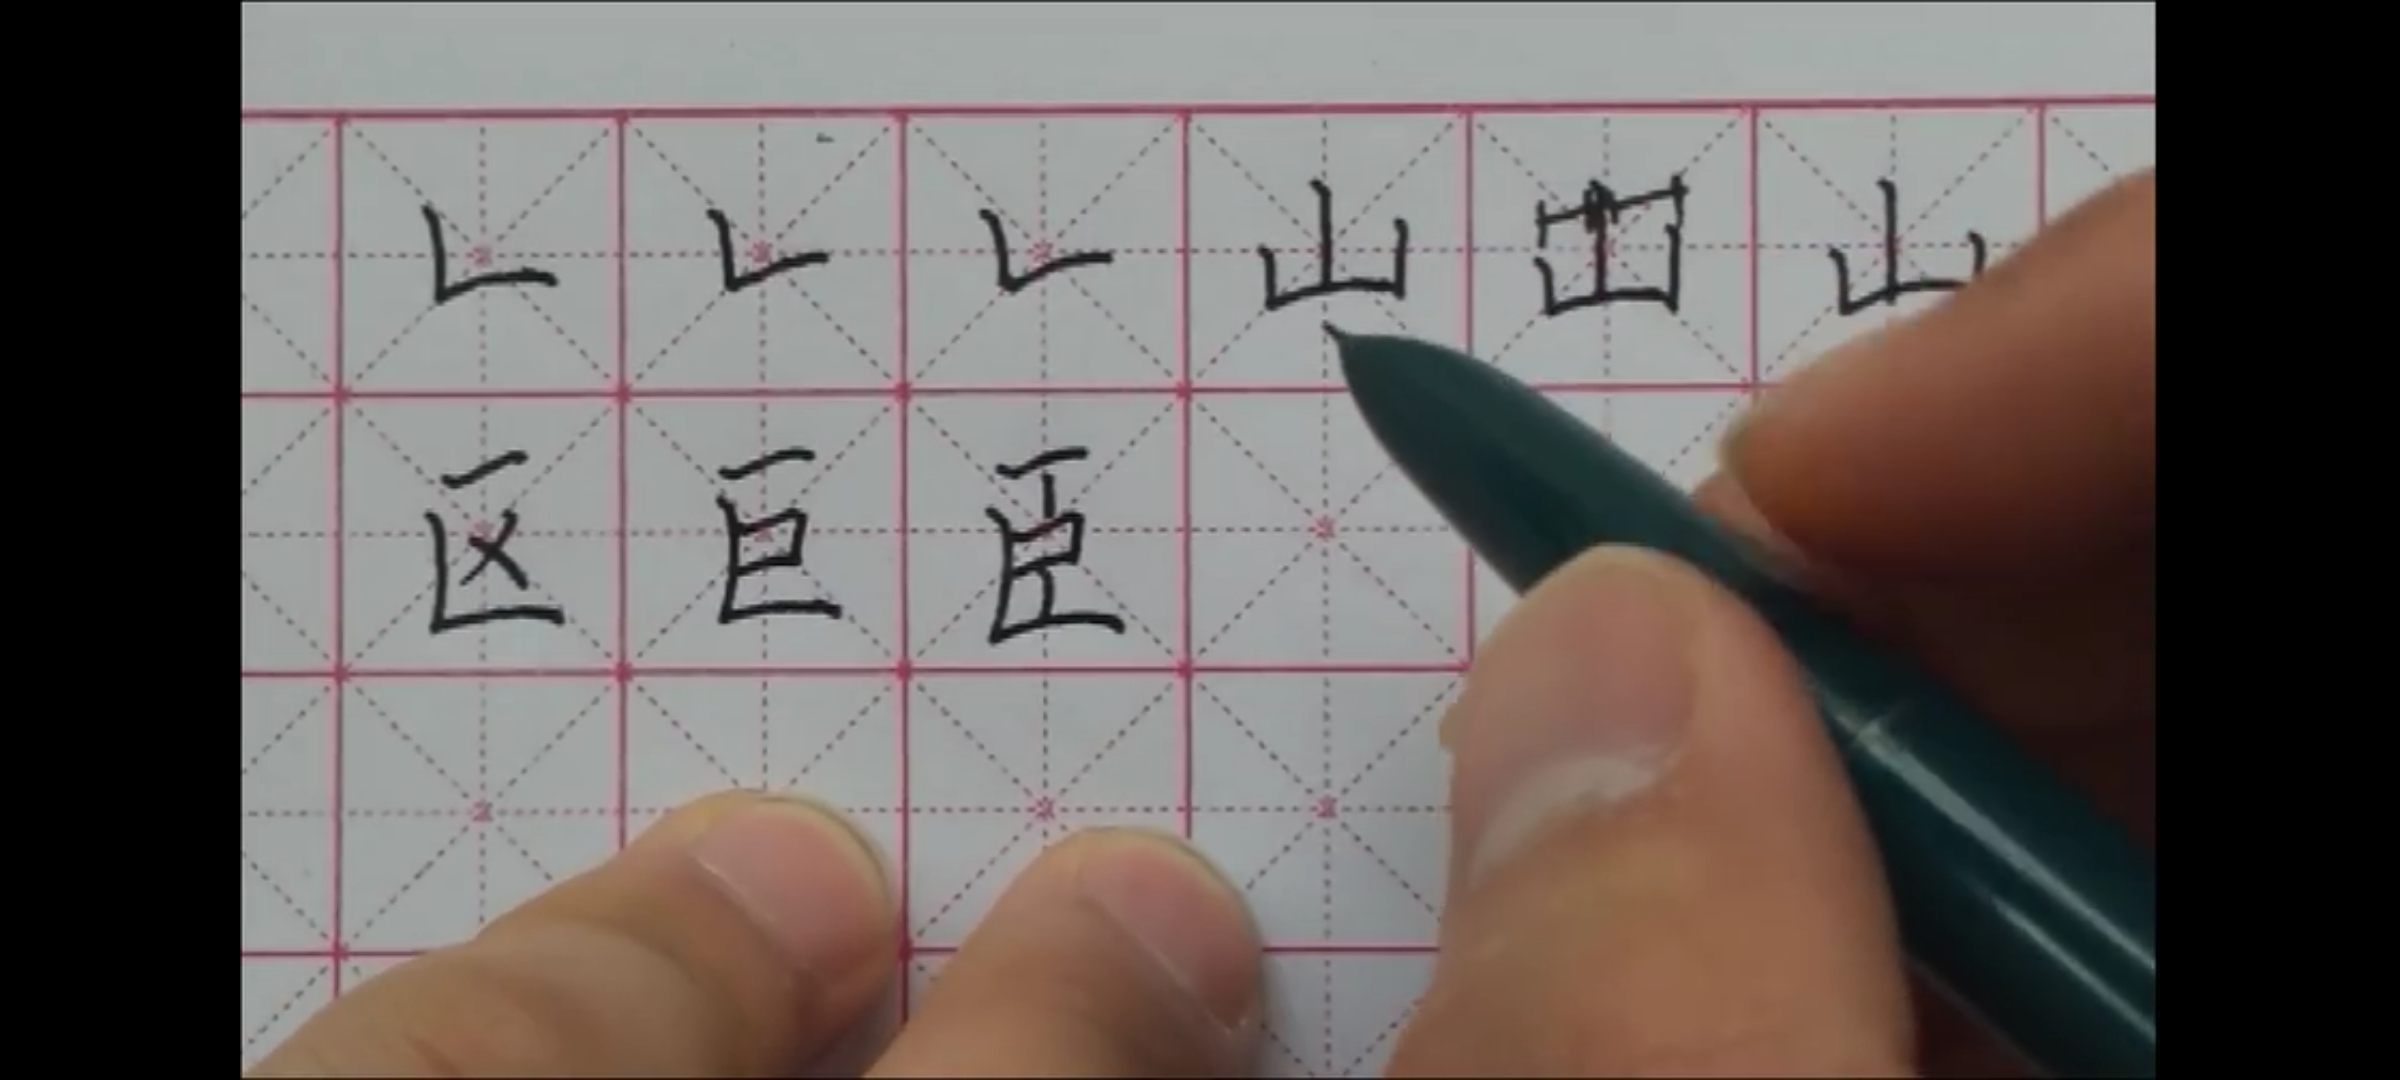 𠃊 𠃊 𠃊 山 山 山
区 巨 臣